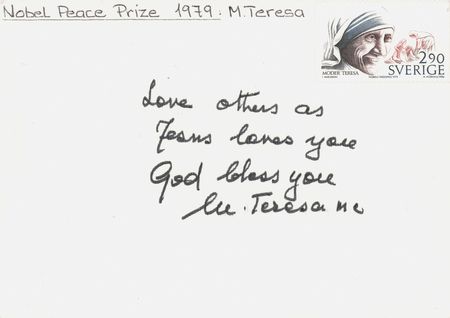 Nobel Peace Prize 1979: M. Teresa
MODER TERESA
2.90
SVERIGE
Love others as
Jesus loves you
God bless you
M. Teresa mc